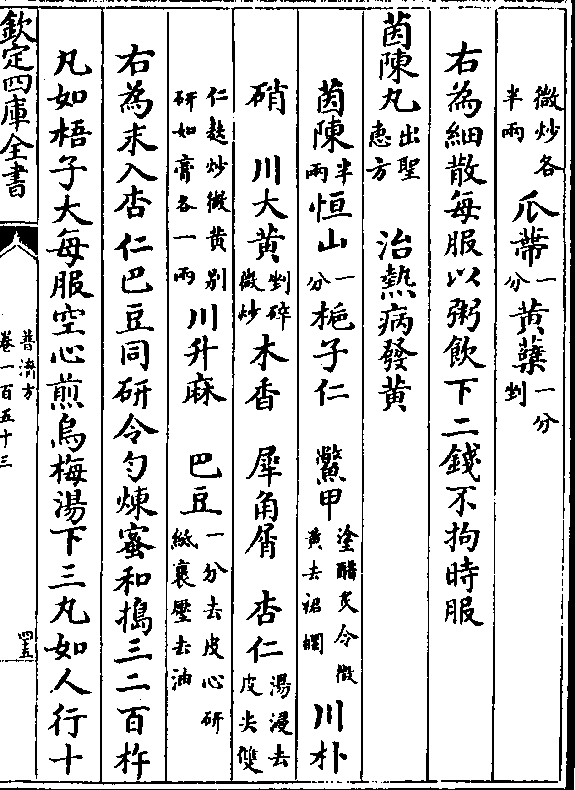 微炒各半兩 瓜蔕一分 黄蘗一分剉
右為細散每服以粥飲下二錢不拘時服
茵陳丸出聖惠方 治熱病發黄
茵陳半兩 恒山一分 梔子仁 鱉甲塗醋炙令微黄去裙襴 川朴
硝 川大黄剉碎微炒 木香 犀角屑 杏仁湯浸去皮尖雙
仁麩炒微黄别研如膏各一兩 川升麻 巴豆一分去皮心研紙裹壓去油
右為末入杏仁巴豆同研令勻煉蜜和搗三二百杵
丸如梧子大每服空心煎烏梅湯下三丸如人行十
欽定四庫全書
普濟方
卷一百五十三
四五